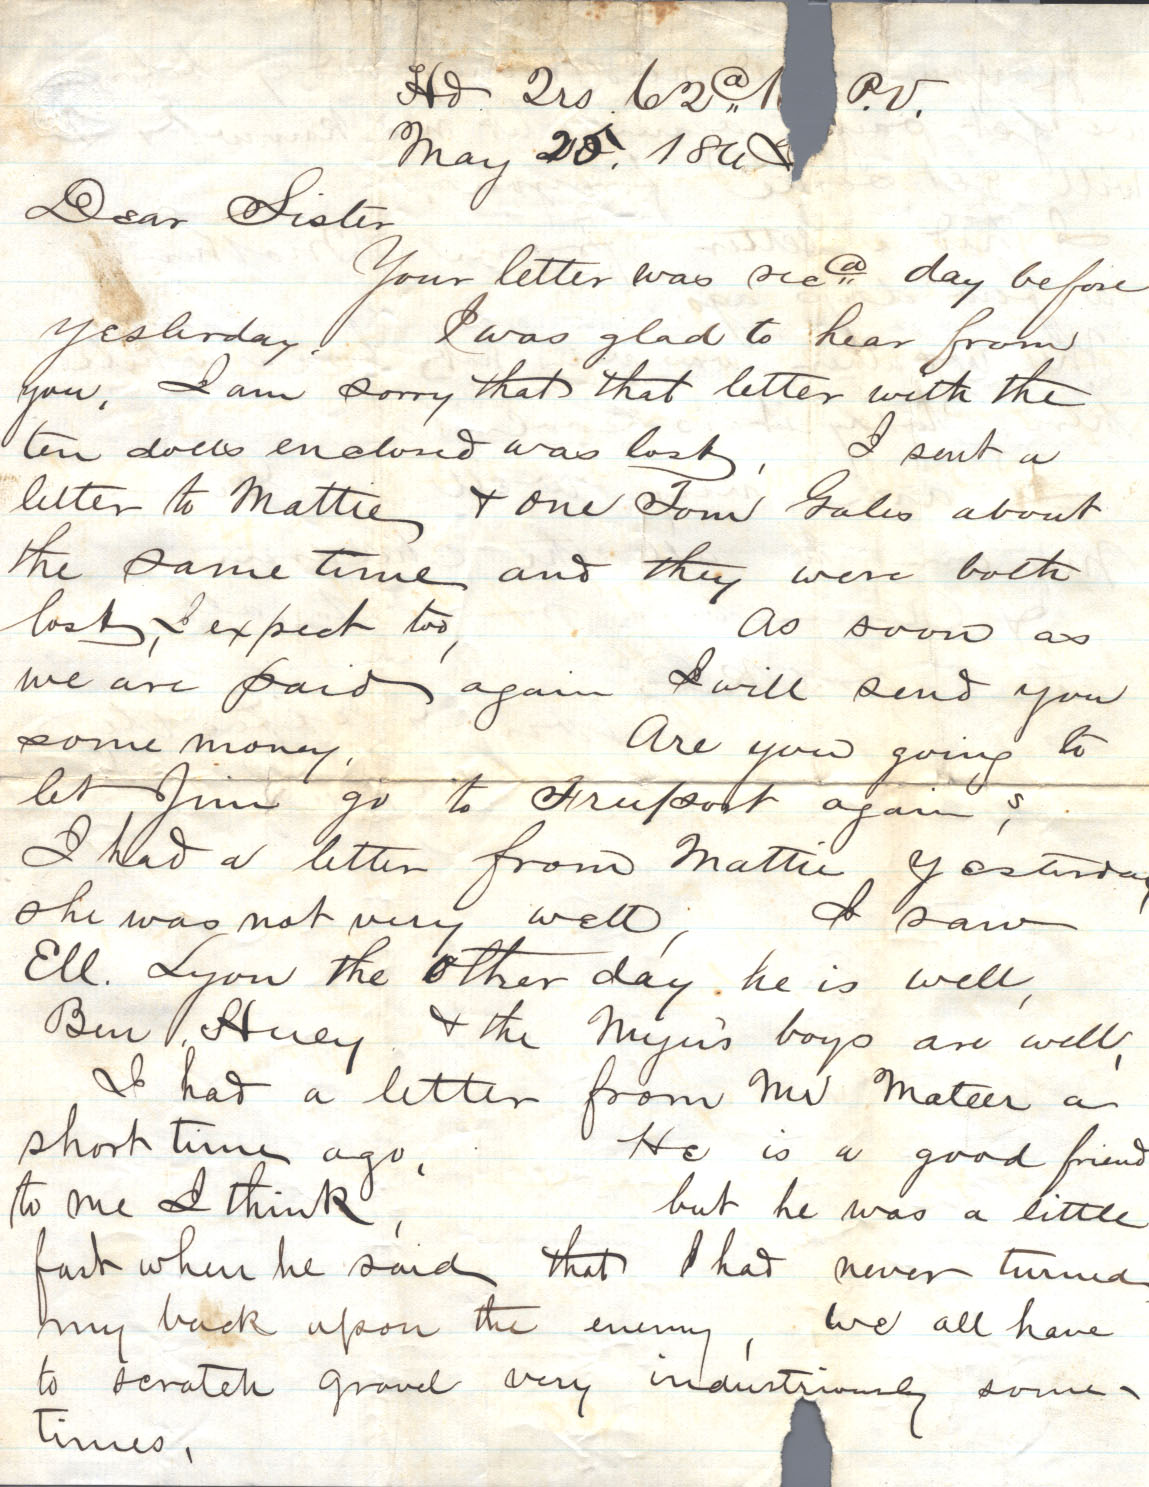 Hd. Qrs. 62d P.V.
May 25. 186
Dear Sister
Your letter was recd day before
yesterday. I was glad to hear from
you, I am sorry that that letter with the
ten dolls enclosed was lost, I sent a
letter to Mattie & one Tom Gales about
the same time and they were both
lost, I expect too, As soon as
we are paid again I will send you
some money, Are you going to
let Jim go to Freeport again,
I had a letter from Mattie yesterday
she was not very well, I saw
Ell. Lyon the other day he is well,
Ben Huey & the Myers boys are well,
I had a letter from Mr Mateer a
short time ago, He is a good friend
to me I think, but he was a little
fast when he said that I had never turned
my back upon the enemy, we all have
to scratch gravel very industriously some-
times,